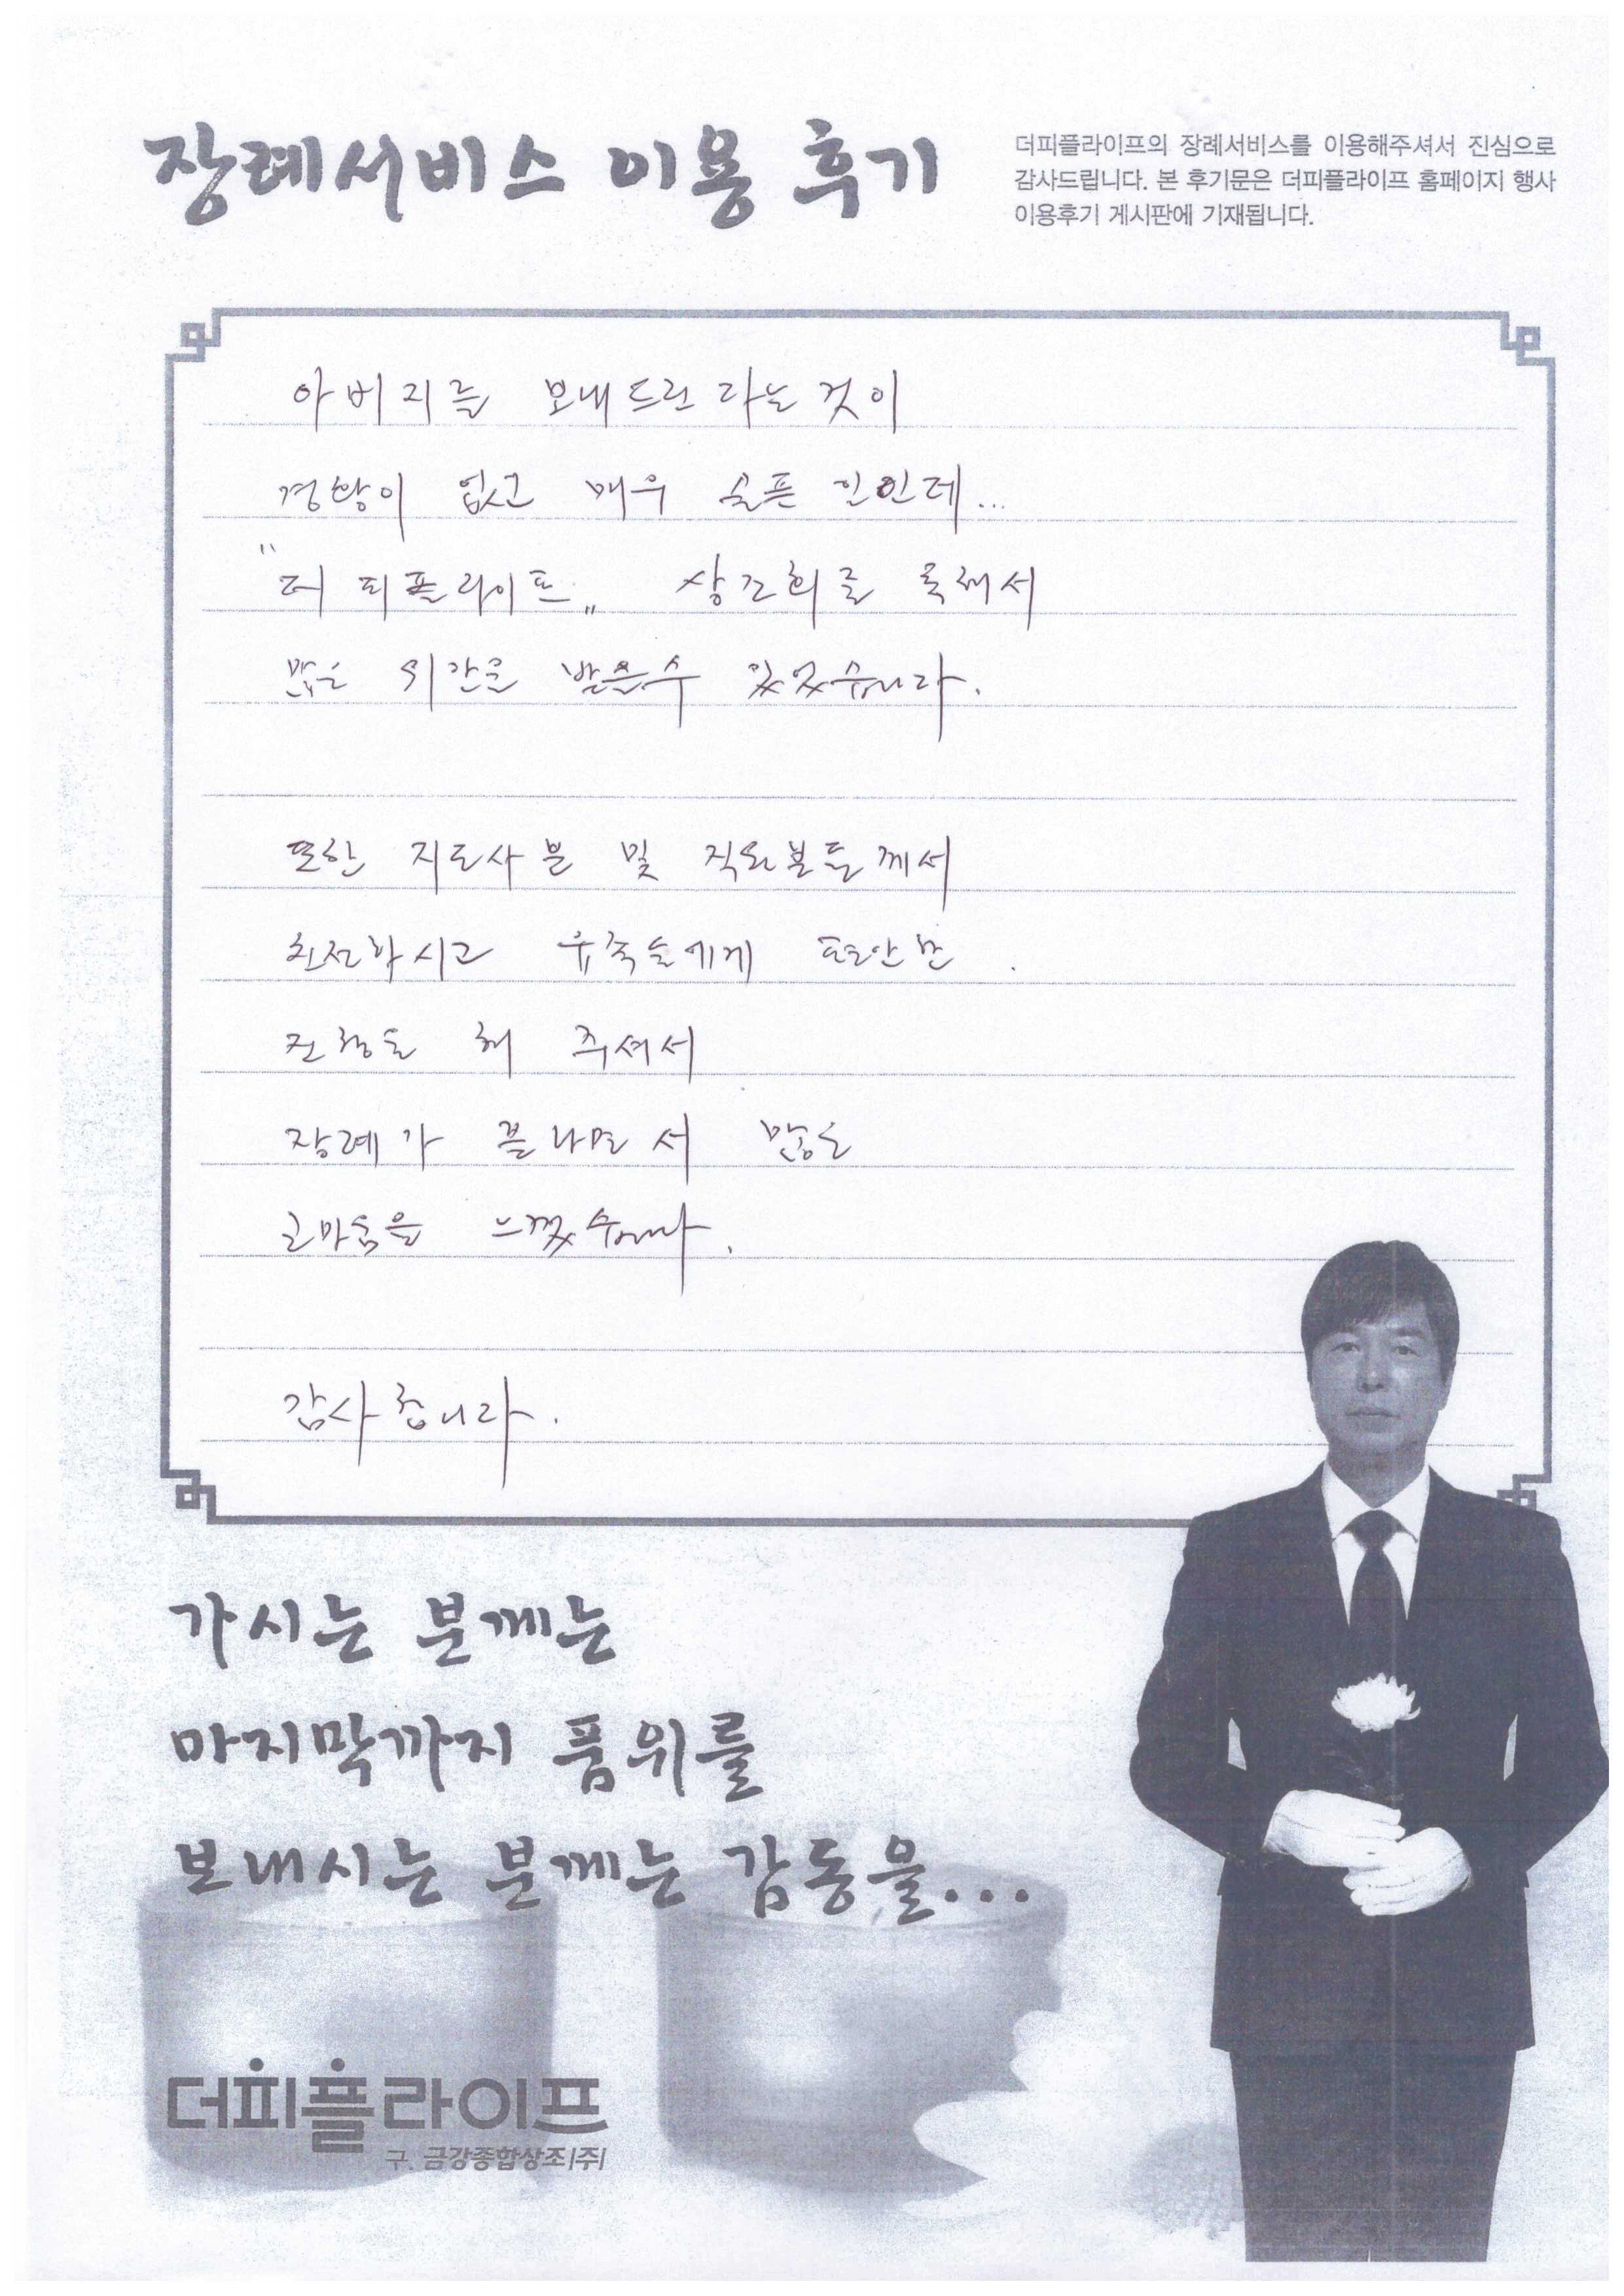 장례서비스 이용 후기
더피플라이프의 장례서비스를 이용해주셔서 진심으로
감사드립니다. 본 후기문은 더피플라이프 홈페이지 행사
이용후기 게시판에 기재됩니다.
아버지를 보내드린다는것이
경황이 없고 매우 슬픈 일인데...
"더 피플라이프" 상조회를 통해서
많은 위안을 받을수 있었습니다.
또한 지도사분 및 직원분들께서
친절하시고 유족들에게 편안한
진행을 해 주셔서
장례가 끝나면서 많은
고마움을 느꼈습니다.
감사합니다.
가시는 분께는
마지막까지 품위를
보내시는 분께는 감동을...
더피플라이프
구. 금강종합상조(주)